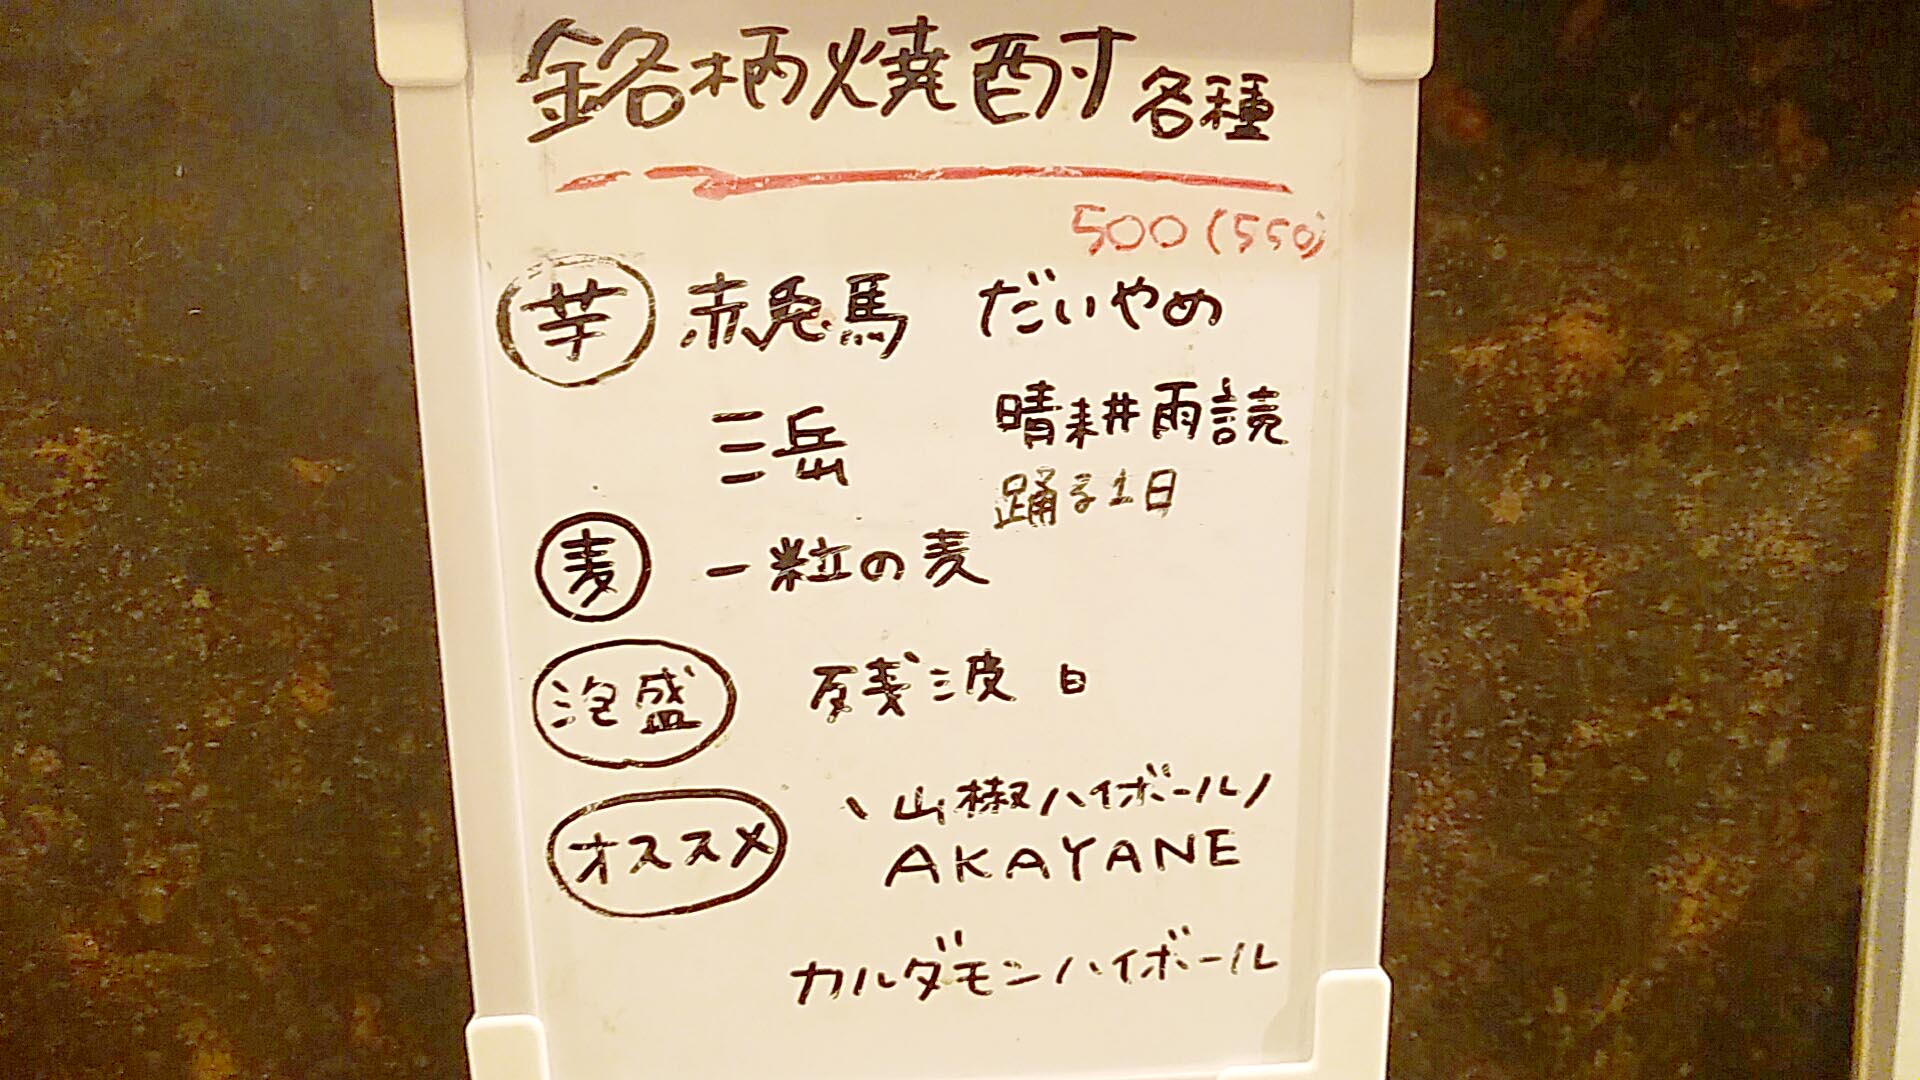 銘柄焼酎各種
500(550)
芋 赤兎馬 だいやめ
三岳 晴耕雨読
踊る1日
麦 一粒の麦
泡盛 残波 白
オススメ \山椒ハイボール/
AKAYANE
カルダモンハイボール